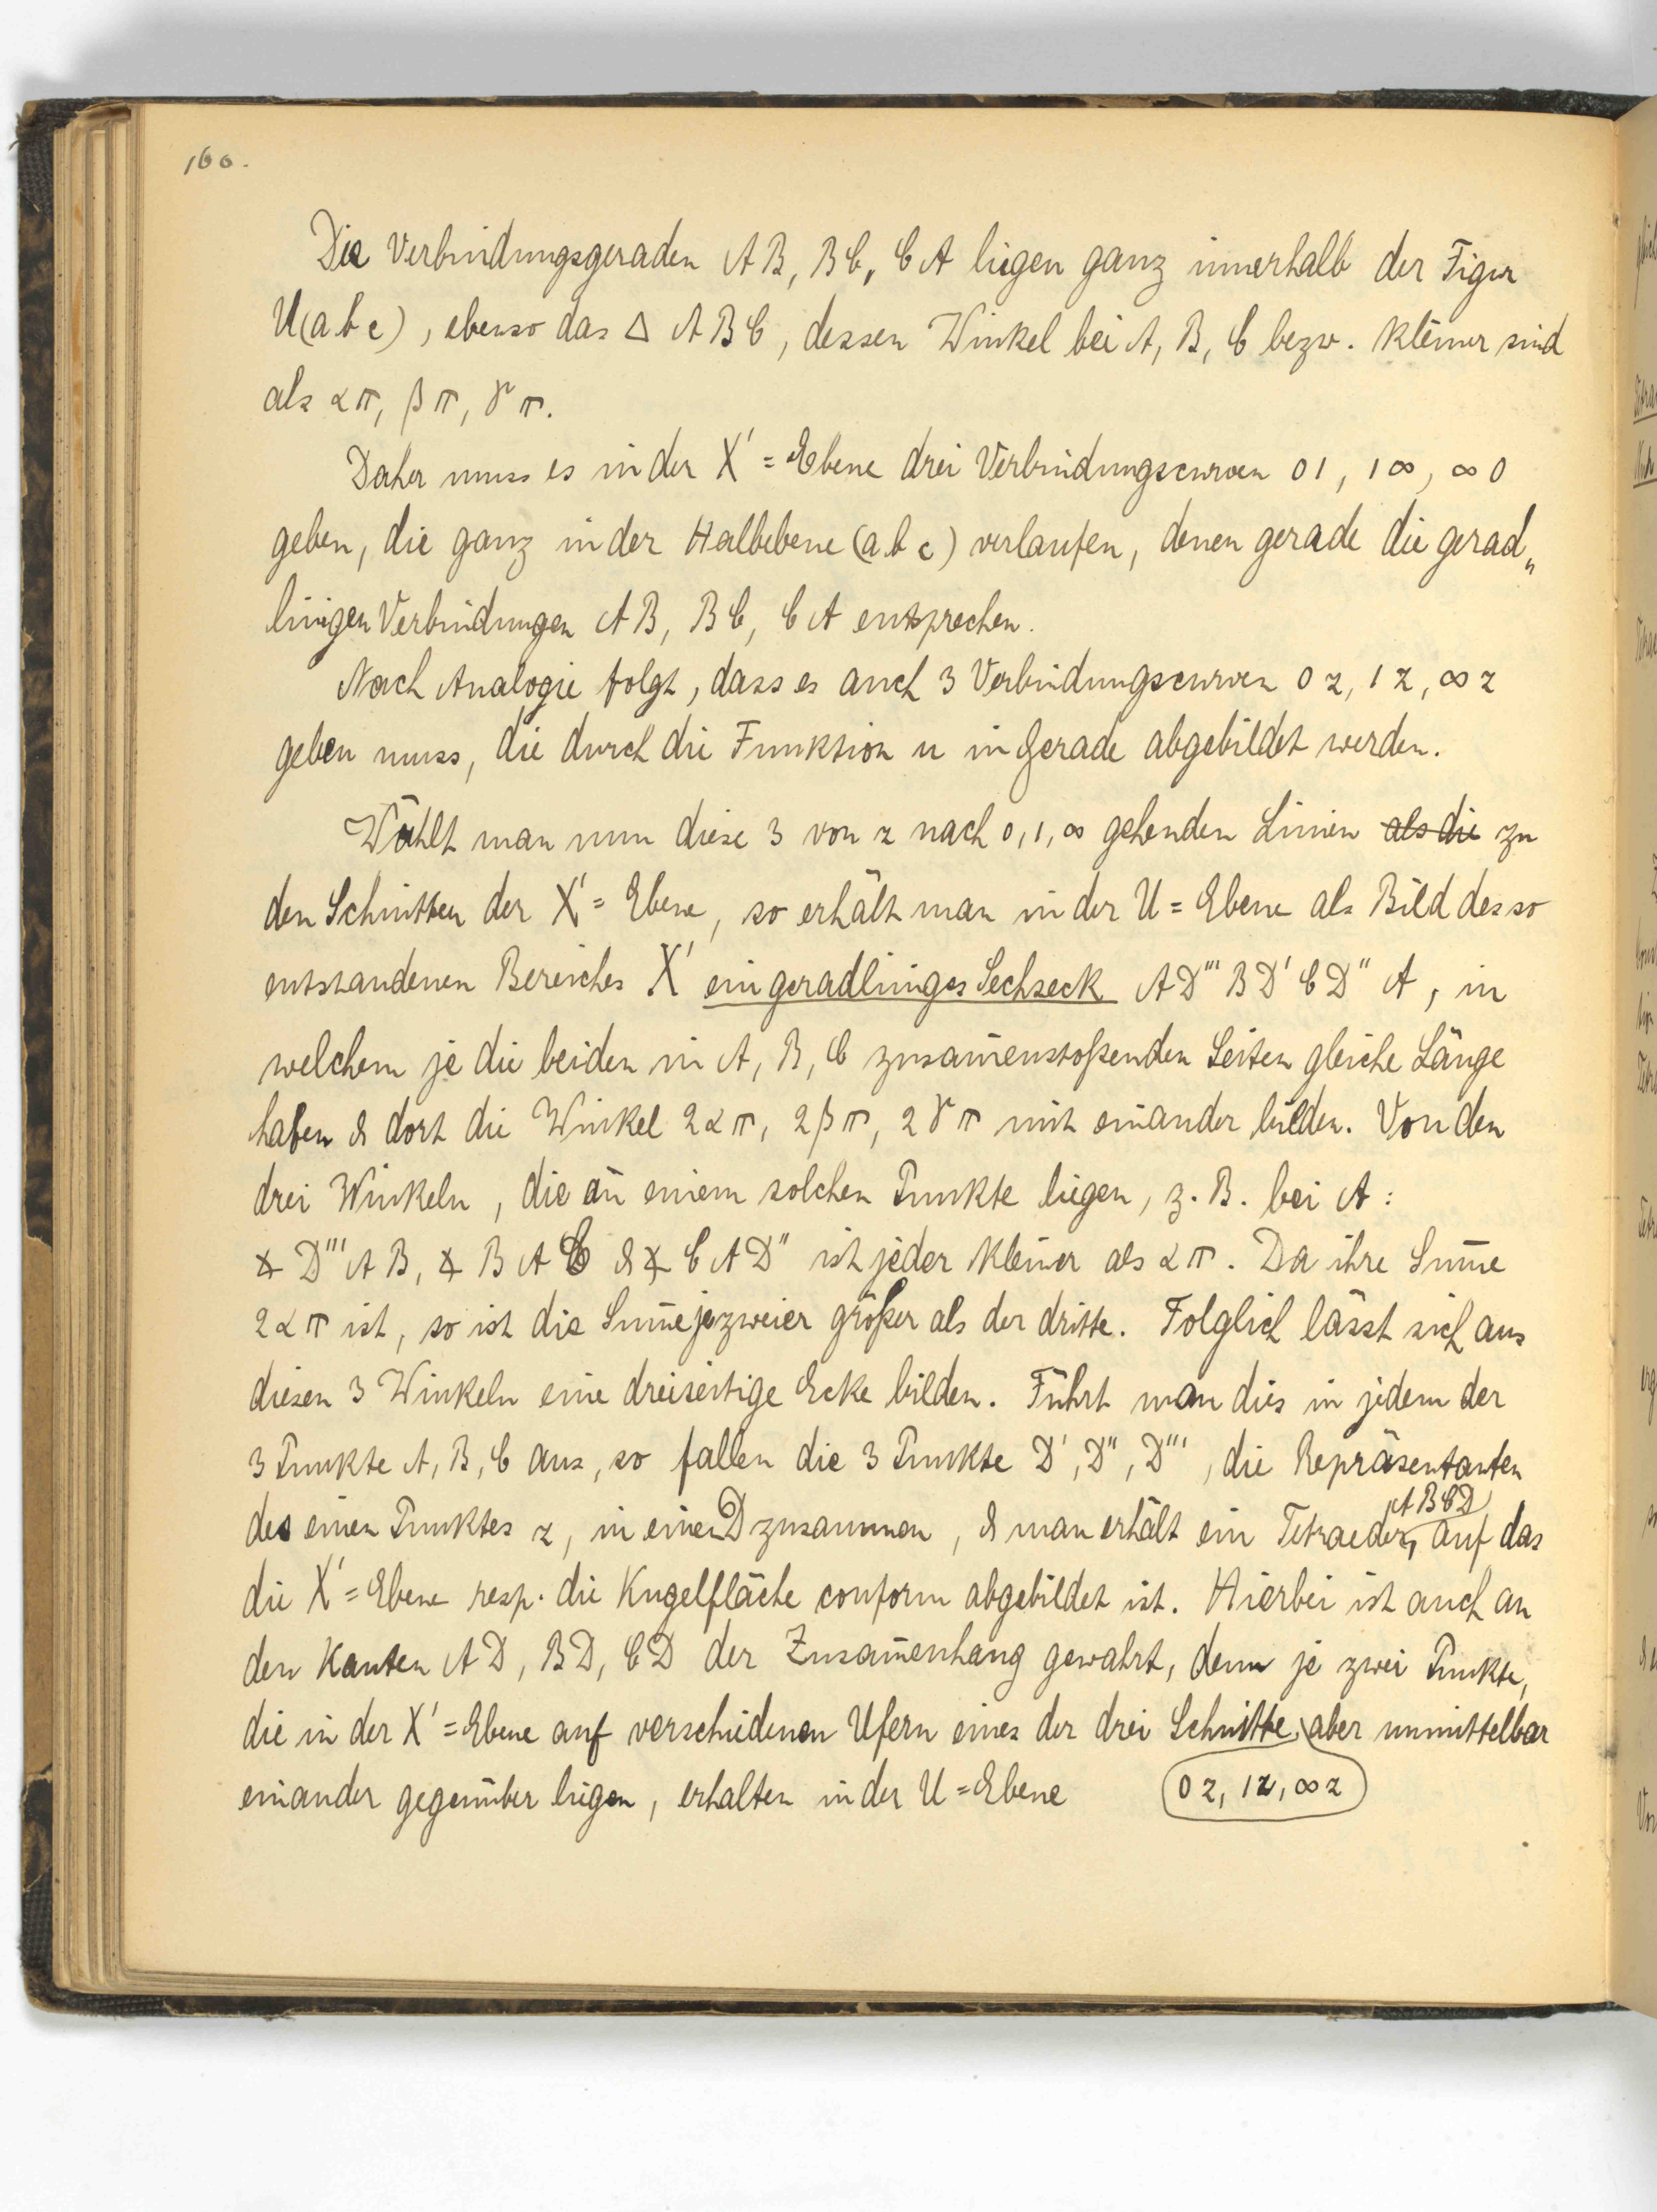 160.
Die Verbindungsgeraden AB, BC, CA liegen ganz innerhalb der Figur
U(abc), ebenso das △ ABC, dessen Winkel bei A, B, C bezw. kleiner sind
als απ, βπ, γπ.
Daher muss es in der X' = Ebene drei Verbindungscurven 01, 1∞, ∞0
geben, die ganz in der Halbebene (abc) verlaufen, denen gerade die gerad„
linigen Verbindungen AB, BC, CA entsprechen.
Nach Analogie folgt, dass es auch 3 Verbindungscurven 0z, 1z, ∞z
geben muss, die durch die Funktion u in Gerade abgebildet werden.
Wählt man nun diese 3 von z nach 0, 1, ∞ gehenden Linien als die zu
den Schnitten der X' = Ebene, so erhält man in der U = Ebene als Bild des so
entstandenen Bereiches X' ein geradliniges Sechseck AD'''BD'CD''A, in
welchem je die beiden in A, B, C zusam̄enstoßenden Seiten gleiche Länge
haben & dort die Winkel 2απ, 2βπ, 2γπ mit einander bilden. Von den
drei Winkeln, die an einem solchen Punkte liegen, z. B. bei A:
∢ D'''AB, ∢ BAC & ∢ CAD'' ist jeder kleiner als απ. Da ihre Sum̄e
2απ ist, so ist die Sum̄e je zweier größer als der dritte. Folglich lässt sich aus
diesen 3 Winkeln eine dreiseitige Ecke bilden. Führt man dies in jedem der
3 Punkte A, B, C aus, so fallen die 3 Punkte D', D'', D''', die Repräsentanten
des einen Punktes z, in einen D zusammen, & man erhält ein Tetraeder, ABCD auf das
die X' = Ebene resp. die Kugelfläche conform abgebildet ist. Hierbei ist auch an
den Kanten AD, BD, CD der Zusam̄enhang gewahrt, denn je zwei Punkte,
die in der X' = Ebene auf verschiedenen Ufern eines der drei Schnitte, aber unmittelbar
einander gegenüber liegen, erhalten in der U = Ebene
0z, 1z, ∞z